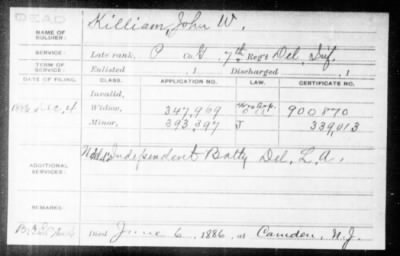 DEAD
NAME OF SOLDIER: Killiam, John W.
SERVICE: Late rank, P Co. G, 7th Reg't Del. Inf.
TERM OF SERVICE: Enlisted , 1 Discharged , 1
DATE OF FILING. CLASS. APPLICATION NO. LAW. CERTIFICATE NO.
Invalid,
Widow, 347,969 900870
Minor, 393,397 J 339,013
ADDITIONAL SERVICES: Independent Batty Del. L. A.
REMARKS:
Died June 6, 1886, at Camden, N.J.